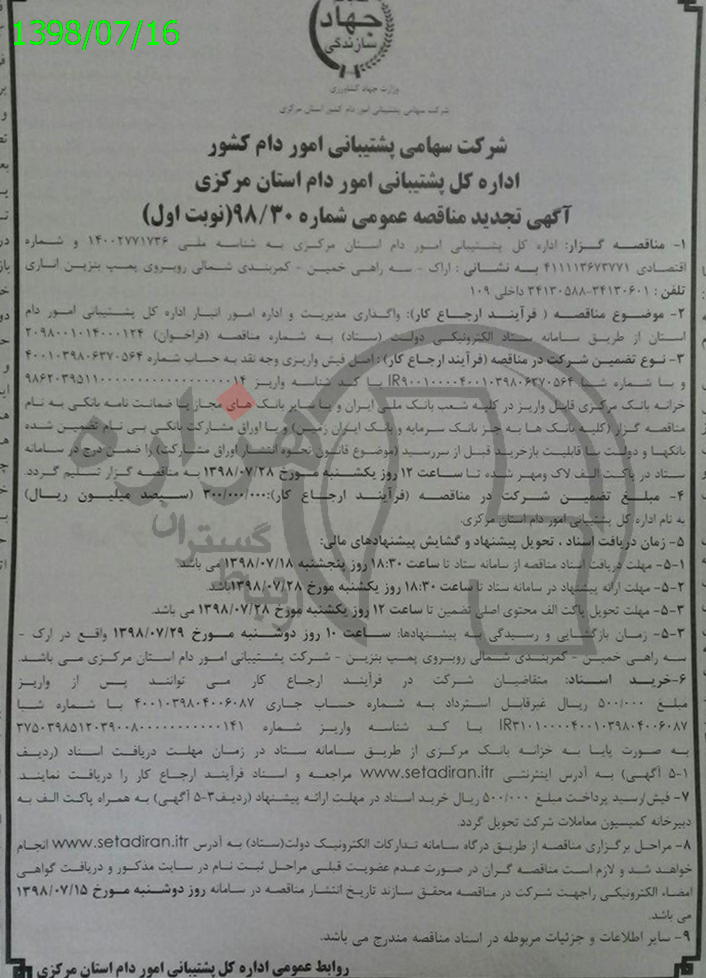 1398/07/16
جهاد
سازندگی
وزارت جهاد کشاورزی
شرکت سهامی پشتیبانی امور دام کشور استان مرکزی
شرکت سهامی پشتیبانی امور دام کشور
اداره کل پشتیبانی امور دام استان مرکزی
آگهی تجدید مناقصه عمومی شماره ۹۸/۳۰(نوبت اول)
۱- مناقصه گزار: اداره کل پشتیبانی امور دام استان مرکزی به شناسه ملی ۱۴۰۰۲۷۷۱۷۳۶ و شماره
اقتصادی ۴۱۱۱۱۳۶۷۳۷۷۱ به نشانی : اراک - سه راهی خمین - کمربندی شمالی روبروی پمپ بنزین اناری
تلفن : ۳۴۱۳۰۶۰۱-۳۴۱۳۰۵۸۸ داخلی ۱۰۹
۲- موضوع مناقصه ( فرآیند ارجاع کار): واگذاری مدیریت و اداره امور انبار اداره کل پشتیبانی امور دام
استان از طریق سامانه ستاد الکترونیکی دولت (ستاد) به شماره مناقصه (فراخوان) ۲۰۹۸۰۰۱۰۱۴۰۰۰۱۲۴
۳- نوع تضمین شرکت در مناقصه (فرآیند ارجاع کار) : اصل فیش واریزی وجه نقد به حساب شماره ۴۰۰۱۰۳۹۸۰۶۳۷۰۵۶۴
و با شماره شبا IR۹۰۰۱۰۰۰۰۴۰۰۱۰۳۹۸۰۶۳۷۰۵۶۴ با کد شناسه واریز
خزانه بانک مرکزی قابل واریز در کلیه شعب بانک ملی ایران و یا سایر بانک های مجاز یا ضمانت نامه بانکی به نام
مناقصه گزار (کلیه بانک ها به جز بانک سرمایه و بانک ایران زمین) و یا اوراق مشارکت بانکی بی نام تضمین شده
بانکها و دولت با قابلیت بازخرید قبل از سررسید (موضوع قانون نحوه انتشار اوراق مشارکت) را ضمن درج در سامانه
ستاد در پاکت الف لاک ومهر شده تا ساعت ۱۲ روز یکشنبه مورخ ۱۳۹۸/۰۷/۲۸ به مناقصه گزار تسلیم گردد.
۴- مبلغ تضمین شرکت در مناقصه (فرآیند ارجاع کار): ۳۰۰/۰۰۰/۰۰۰ (سیصد میلیون ریال)
به نام اداره کل پشتیبانی امور دام استان مرکزی.
۵- زمان دریافت اسناد ، تحویل پیشنهاد و گشایش پیشنهادهای مالی:
۵-۱- مهلت دریافت اسناد مناقصه از سامانه ستاد تا ساعت ۱۸:۳۰ روز پنجشنبه ۱۳۹۸/۰۷/۱۸ می باشد.
۵-۲- مهلت ارائه پیشنهاد در سامانه ستاد تا ساعت ۱۸:۳۰ روز یکشنبه مورخ ۱۳۹۸/۰۷/۲۸باشد.
۵-۳- مهلت تحویل پاکت الف محتوی اصلی تضمین تا ساعت ۱۲ روز یکشنبه مورخ ۱۳۹۸/۰۷/۲۸ می باشد.
۵-۳- زمان بازگشایی و رسیدگی به پیشنهادها: ساعت ۱۰ روز دوشنبه مورخ ۱۳۹۸/۰۷/۲۹ واقع در ارک -
سه راهی خمین - کمربندی شمالی روبروی پمپ بنزین - شرکت پشتیبانی امور دام استان مرکزی می باشد.
۶-خرید اسناد: متقاضیان شرکت در فرآیند ارجاع کار می توانند پس از واریز
مبلغ ۵۰۰/۰۰۰ ریال غیرقابل استرداد به شماره حساب جاری ۴۰۰۱۰۳۹۸۰۴۰۰۶۰۸۷ با شماره شبا
IR۳۱۰۱۰۰۰۰۴۰۰۱۰۳۹۸۰۴۰۰۶۰۸۷ با کد شناسه واریز شماره
به صورت پایا به خزانه بانک مرکزی از طریق سامانه ستاد در زمان مهلت دریافت اسناد (ردیف
۵-۱ آگهی) به آدرس اینترنتی www.setadiran.itr مراجعه و اسناد فرآیند ارجاع کار را دریافت نمایند.
۷- فیش/رسید پرداخت مبلغ ۵۰۰/۰۰۰ ریال خرید اسناد در مهلت ارائه پیشنهاد (ردیف۳-۵ آگهی) به همراه پاکت الف به
دبیرخانه کمیسیون معاملات شرکت تحویل گردد.
۸- مراحل برگزاری مناقصه از طریق درگاه سامانه تدارکات الکترونیک دولت(ستاد) به آدرس www.setadiran.itr انجام
خواهد شد و لازم است مناقصه گران در صورت عدم عضویت قبلی مراحل ثبت نام در سایت مذکور و دریافت گواهی
امضاء الکترونیکی راجهت شرکت در مناقصه محقق سازند تاریخ انتشار مناقصه در سامانه روز دوشنبه مورخ ۱۳۹۸/۰۷/۱۵
می باشد.
۹- سایر اطلاعات و جزئیات مربوطه در اسناد مناقصه مندرج می باشد.
روابط عمومی اداره کل پشتیبانی امور دام استان مرکزی
هزاره
گستران